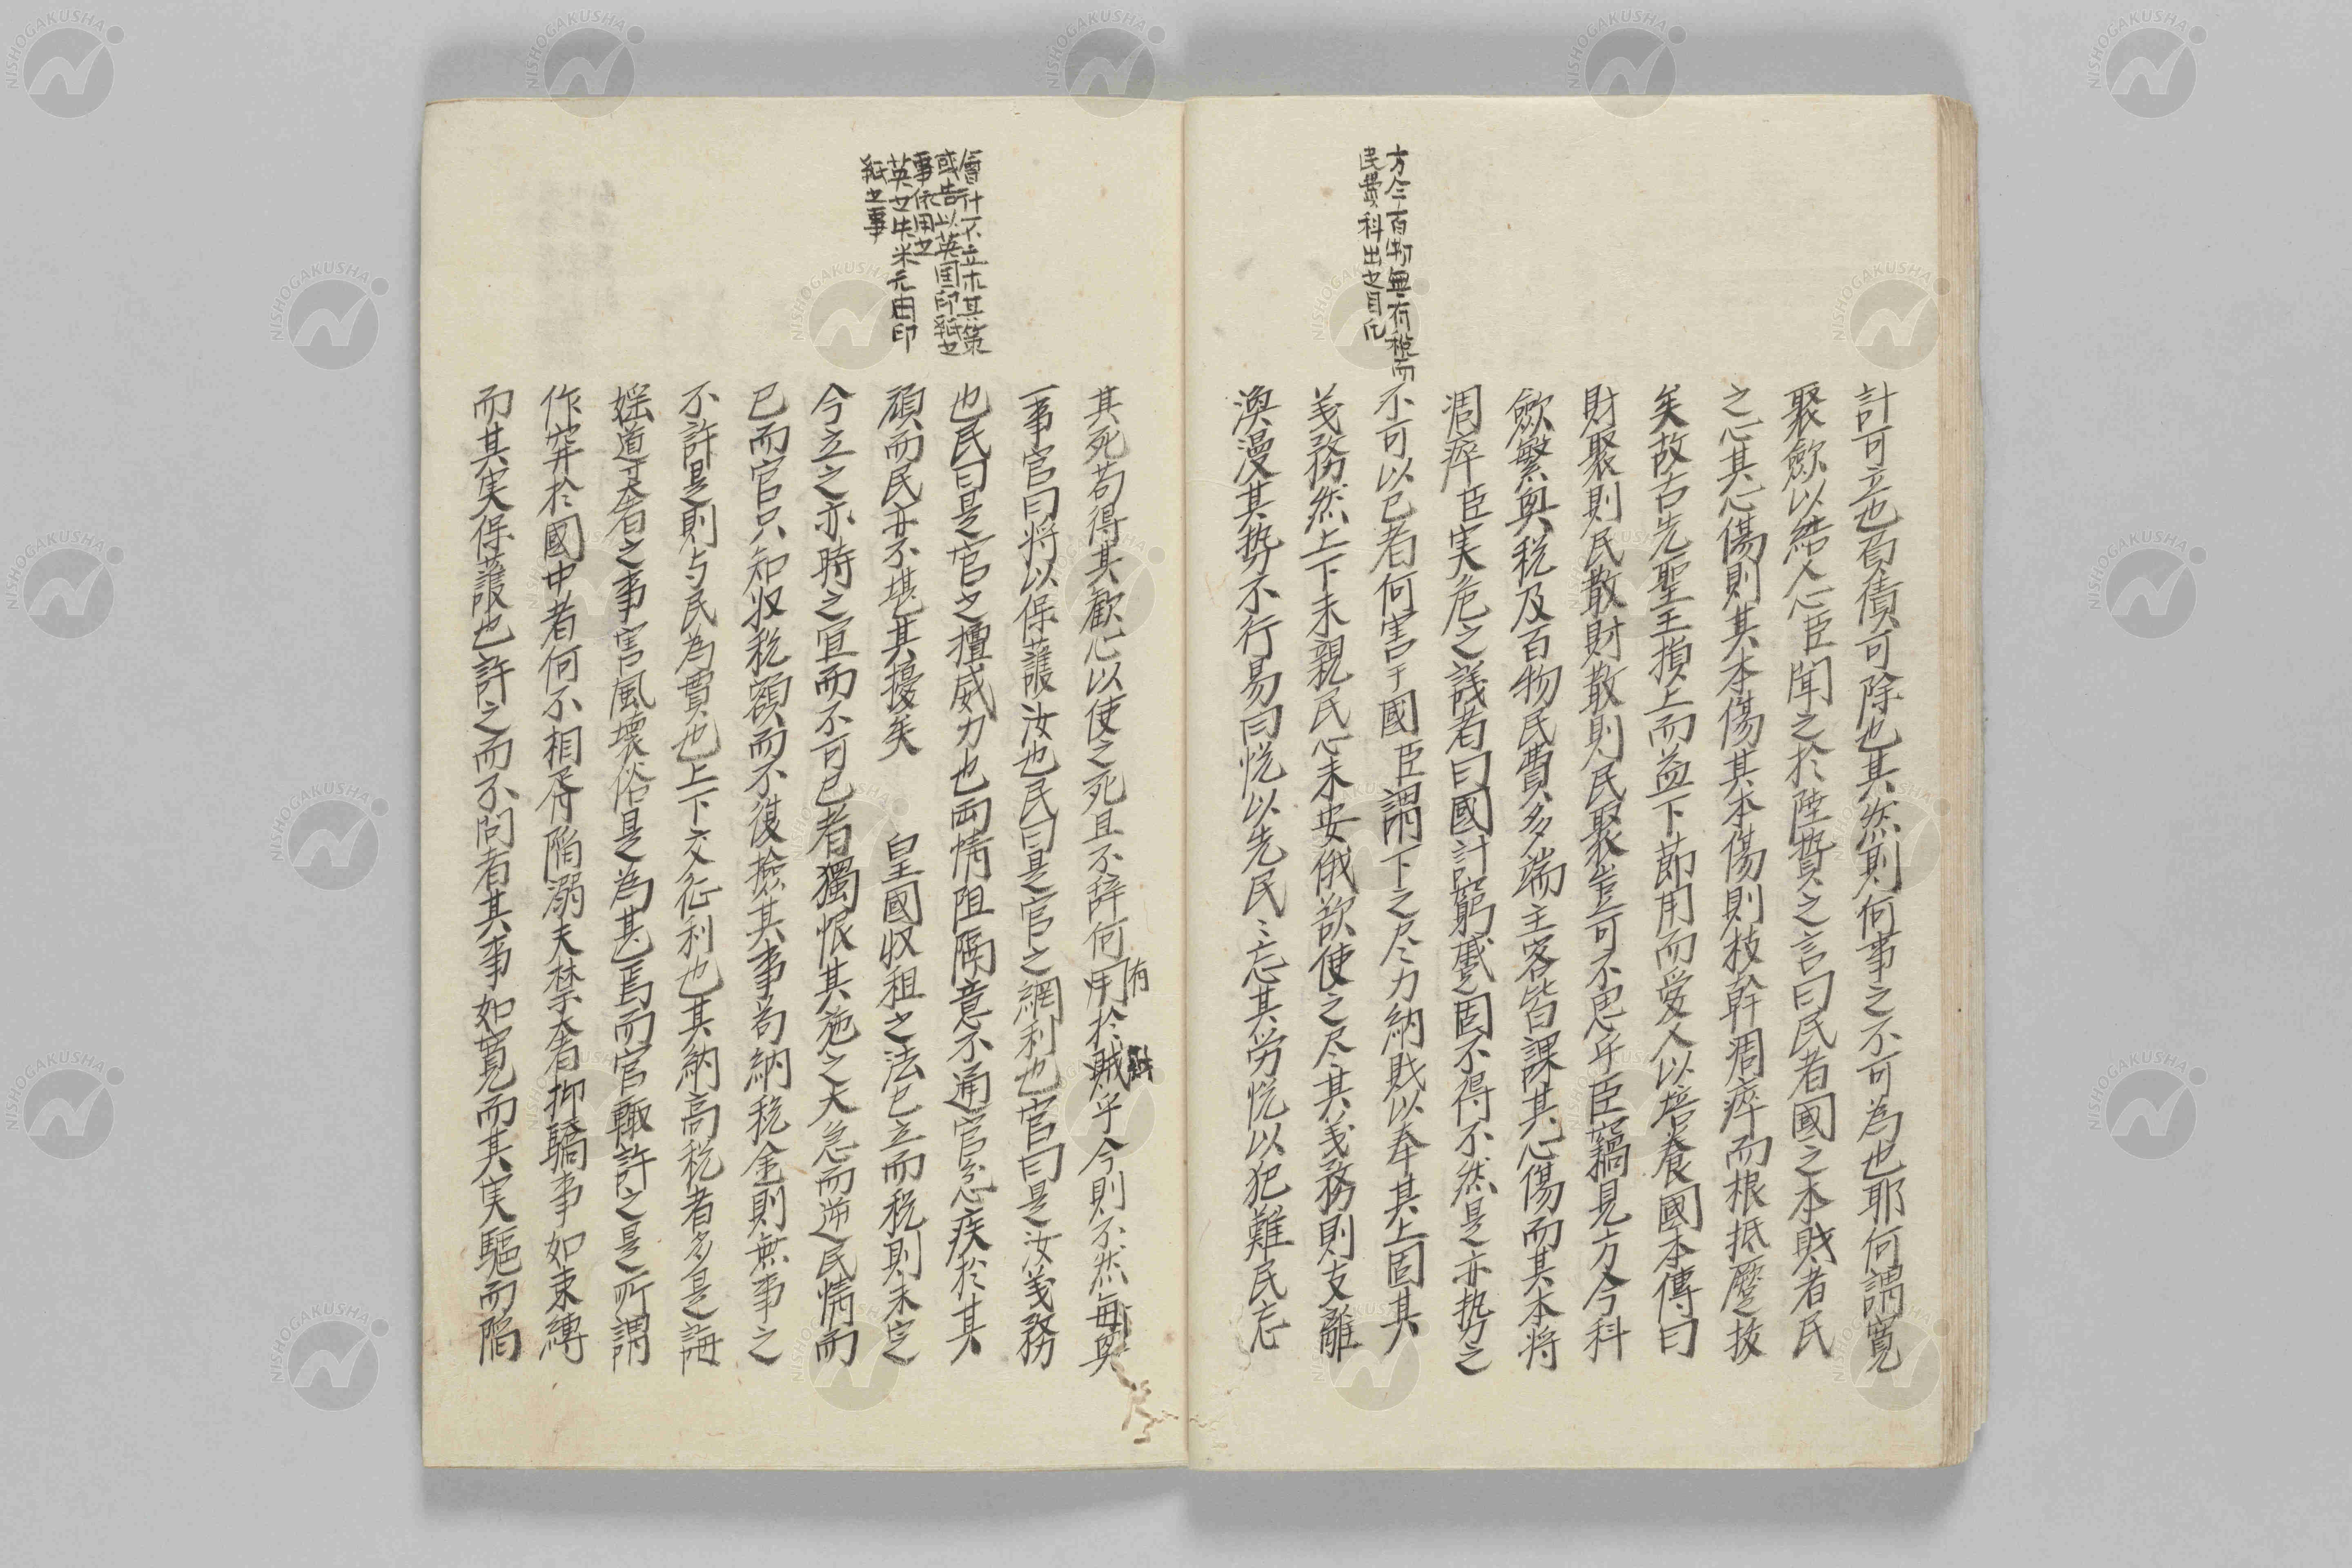 方今百物無不有税而
民費科出之目氏
計可立也負債可除也其然則何事之不可為也耶何謂寛
聚歛以結人心臣聞之於陸贄之言曰民者國之本財者民
之心其心傷則其本傷其本傷則枝幹凋瘁而根抵蹙拔
矣故古先聖王損上而益下節用而愛人以培養國本傳曰
財聚則民散財散則民聚豈可不思乎臣竊見方今科
歛繁興税及百物民費多端主客皆課其心傷而其本将
凋瘁臣実危之議者曰國計窮蹙固不得不然是亦勢之
不可以已者何害于國臣謂下之尽力納財以奉其上固其
義務然上下未親民心未安俄欲使之尽其義務則支離
渙漫其勢不行易曰悦以先民〻忘其労悦以犯難民忘
會計不立亦其策
或告以英国印紙之
事依用之
英之失米元由印
紙之事
其死苟得其歡心以使之死且不辞何有用於財乎今則不然毎興
一事官曰将以保護汝也民曰是官之網利也官曰是汝義務
也民曰是官之擅威力也両情阻隔意不通官忿疾於其
頑而民亦不堪其擾矣 皇國収租之法已立而税則未完
今立之亦時之宜而不可已者獨恨其施之大急而逆民情而
已而官只知収税額而不復撿其事苟納税金則無事之
不許是則与民為賈也上下交征利也其納高税者多是誨
婬道奢之事害風壊俗是為甚焉而官輙許之是所謂
作穽於國中者何不相胥陥溺夫禁奢抑驕事如束縛
而其実保護也許之而不問者其事如寛而其実驅而陥